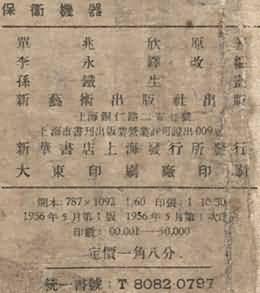 保衛機器
單兆欣原著
李永鐸改編
孫鐵生
新藝術出版社出版
上海銅仁路二百
上海市書刊出版業營業許可證出009
新華書店上海發行所發行
大東印刷廠印刷
開本:787×1092 1/60 印張:1 10/30
1956年5月第1版 1956年5月第1次
印數:00,001—50,000
定價一角八分
統一書號:T 8082·0797